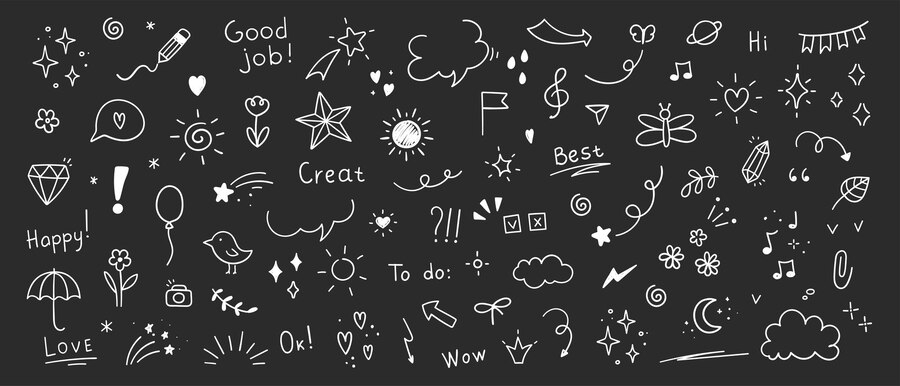 Good
job!
Hi
Best
Creat
Happy!
?!!
To do:
Love
Ok!
Wow